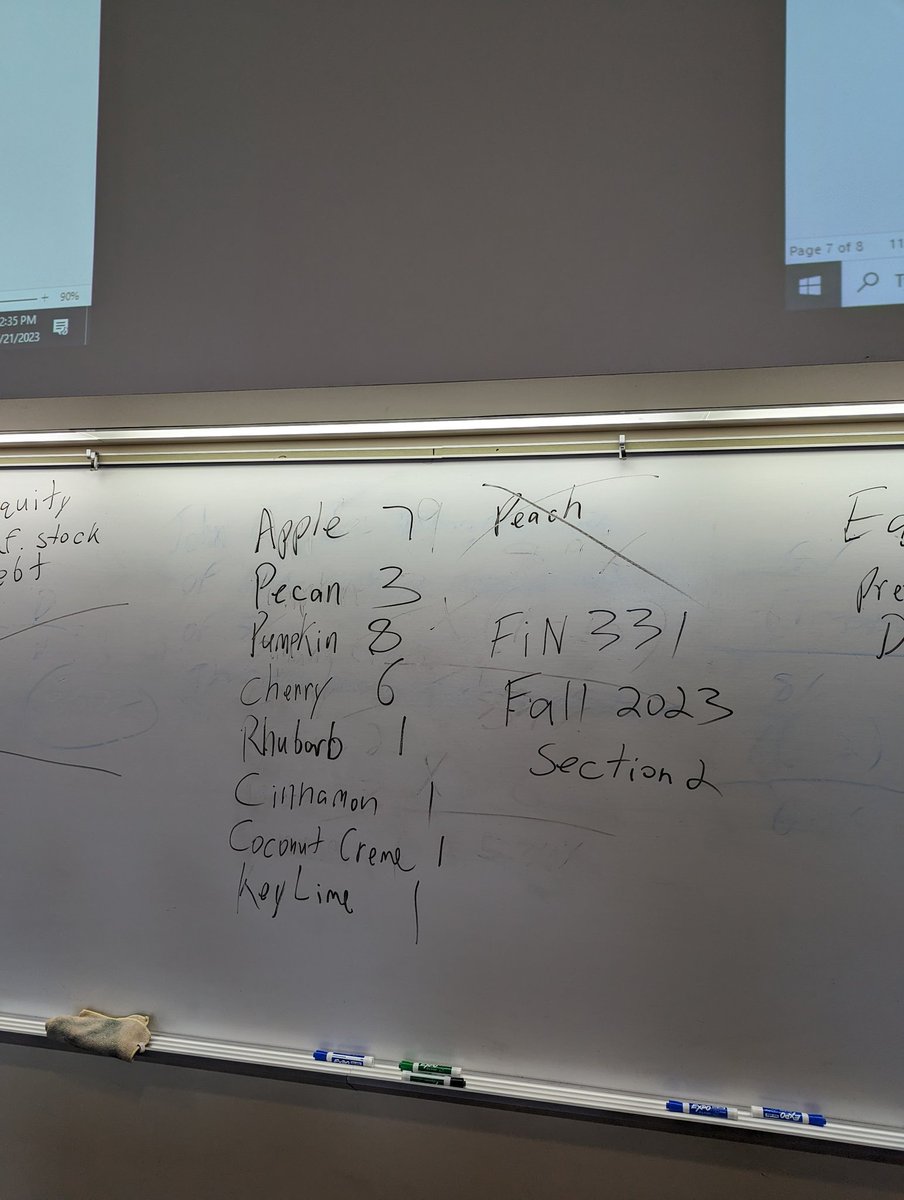 90%
2:35 PM
/21/2023
Page 7 of 8 11
quity
f. stock
ebt
Apple 7
Pecan 3
Pumpkin 8
Cherry 6
Rhubarb 1
Cinnamon 1
Coconut Creme 1
Key Lime 1
Peach
FiN 331
Fall 2023
Section 2
Eq
Pre
D
EXPO
EXPO